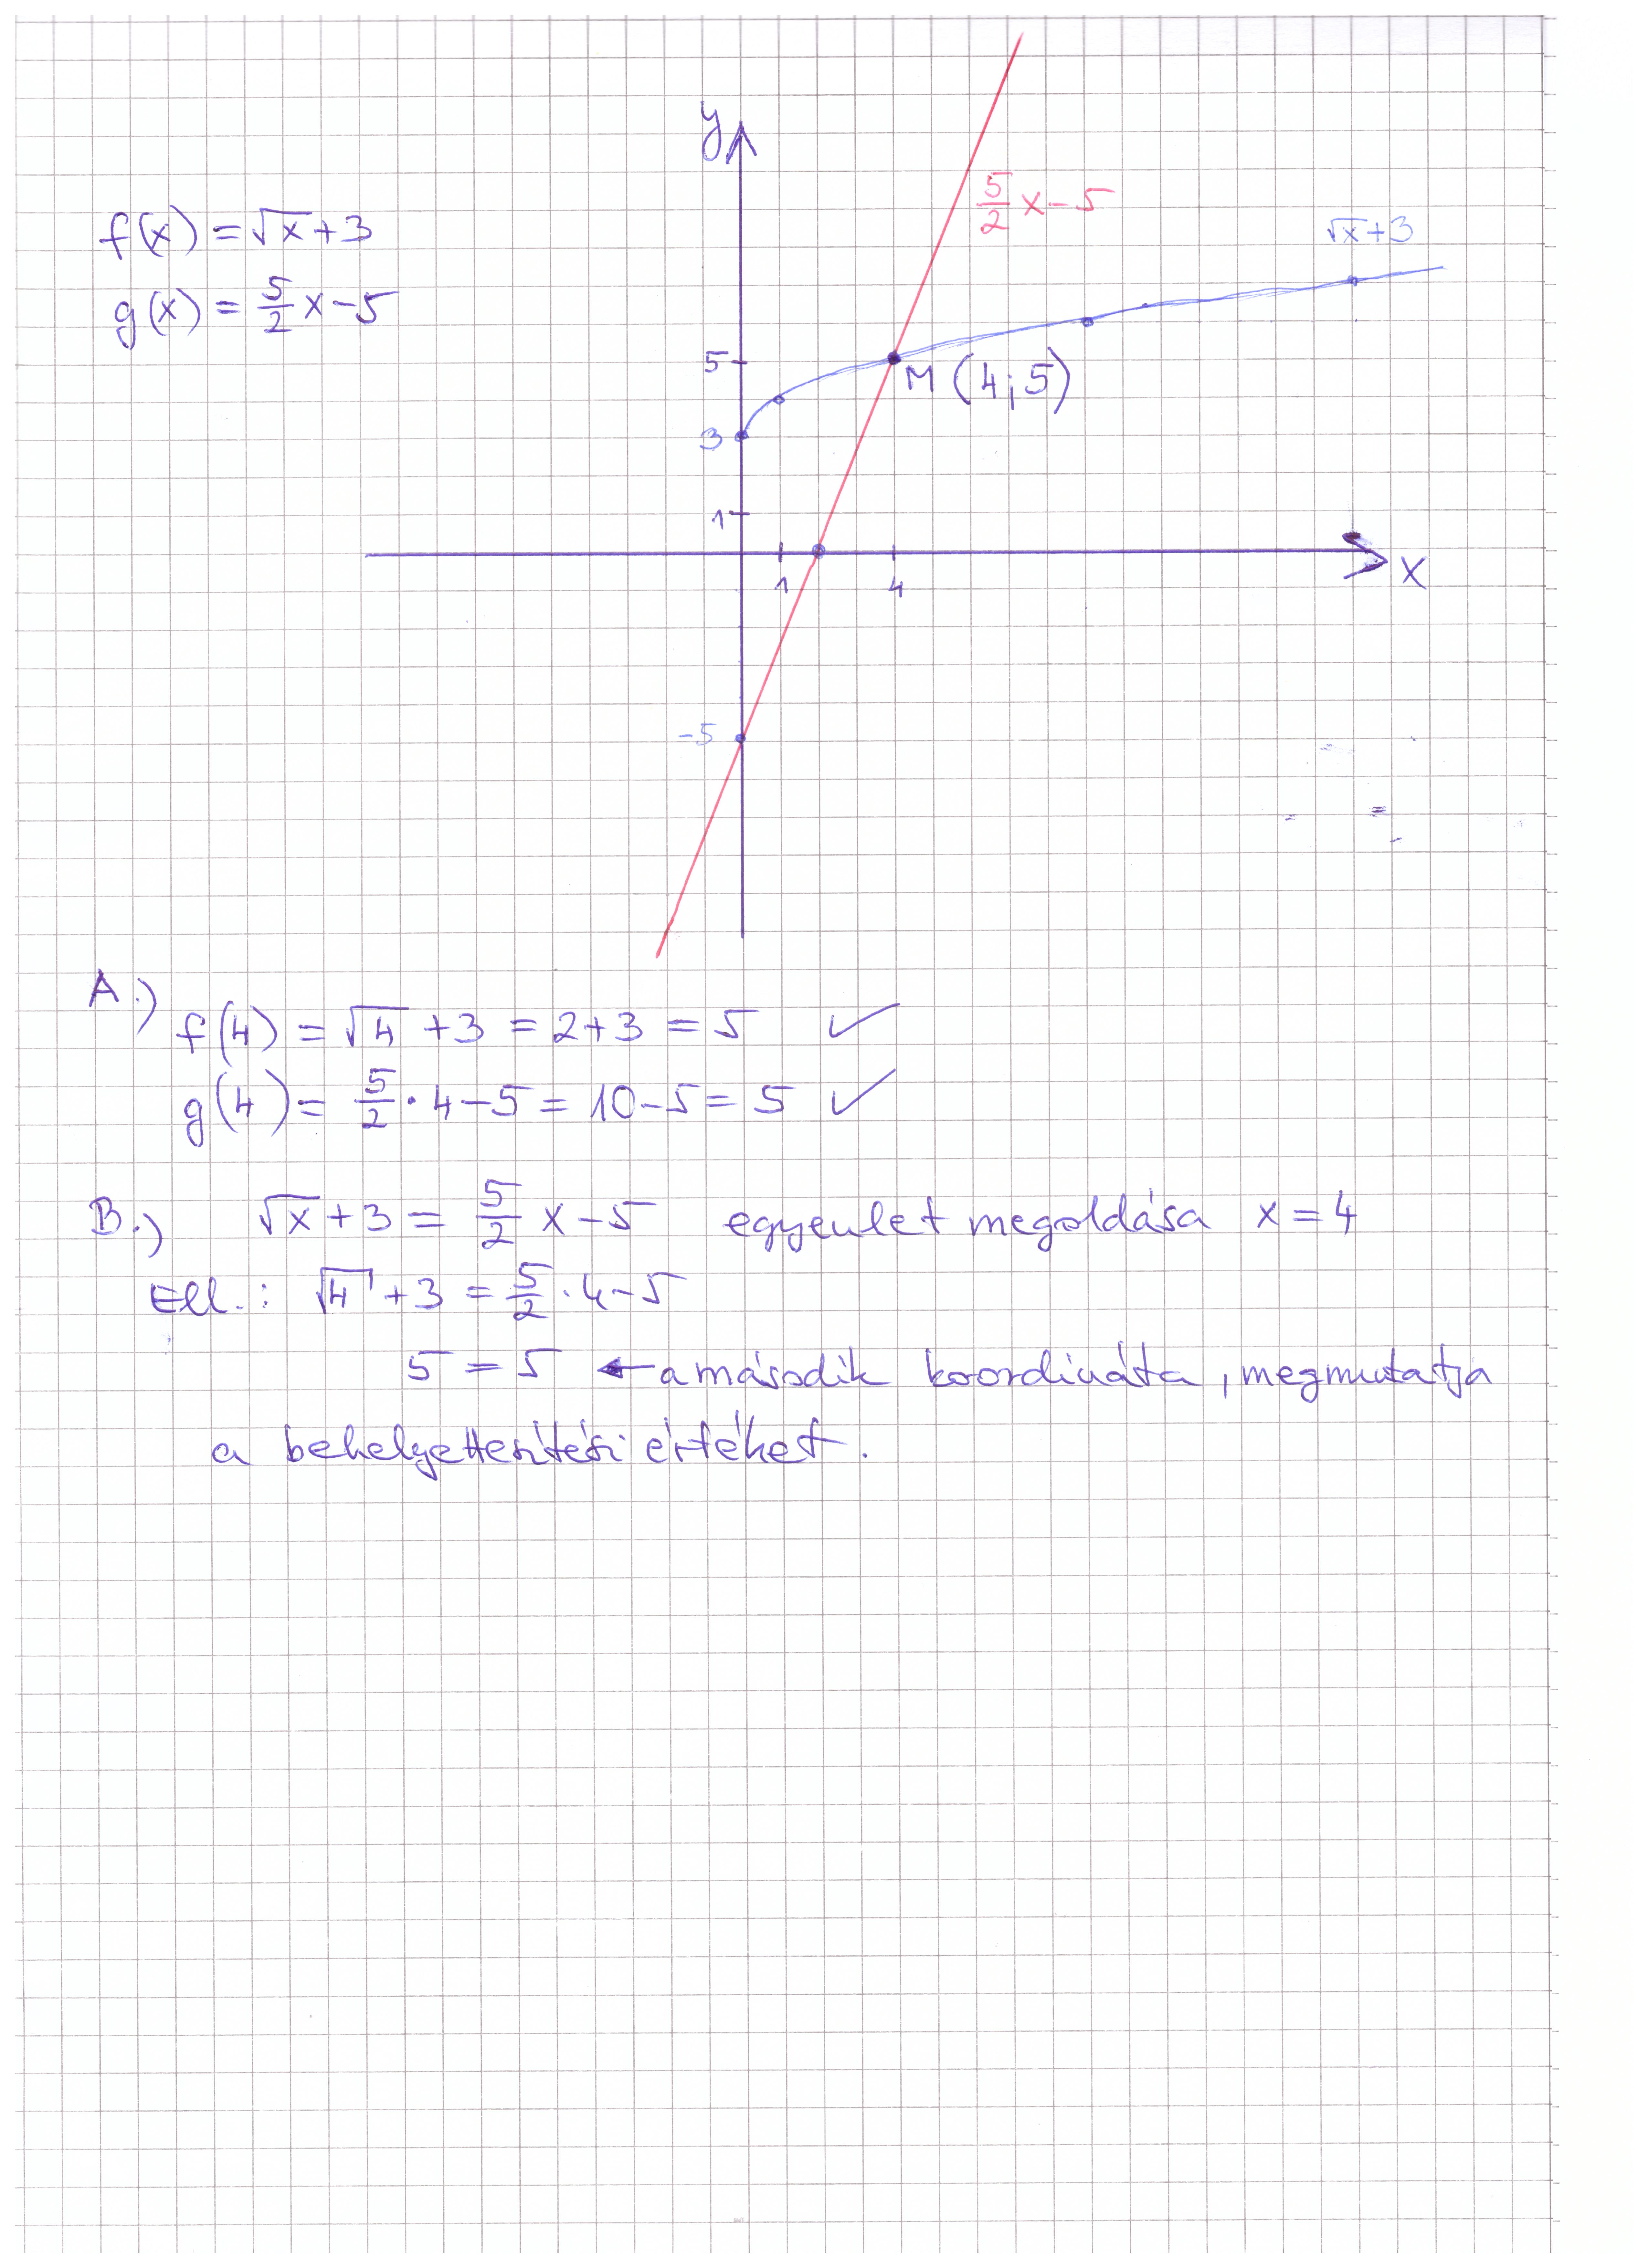 y
5/2 x-5
f(x) = √x+3
√x+3
g(x) = 5/2 x-5
5
M (4;5)
3
1
1
4
x
-5
A.)
f(4) = √4 +3 = 2+3 = 5 ✓
g(4) = 5/2 · 4-5 = 10-5 = 5 ✓
B.) √x+3 = 5/2 x-5 egyenlet megoldása x=4
Ell.: √4+3 = 5/2 · 4-5
5 = 5 ← a második koordináta, megmutatja
a behelyettesítési értéket.